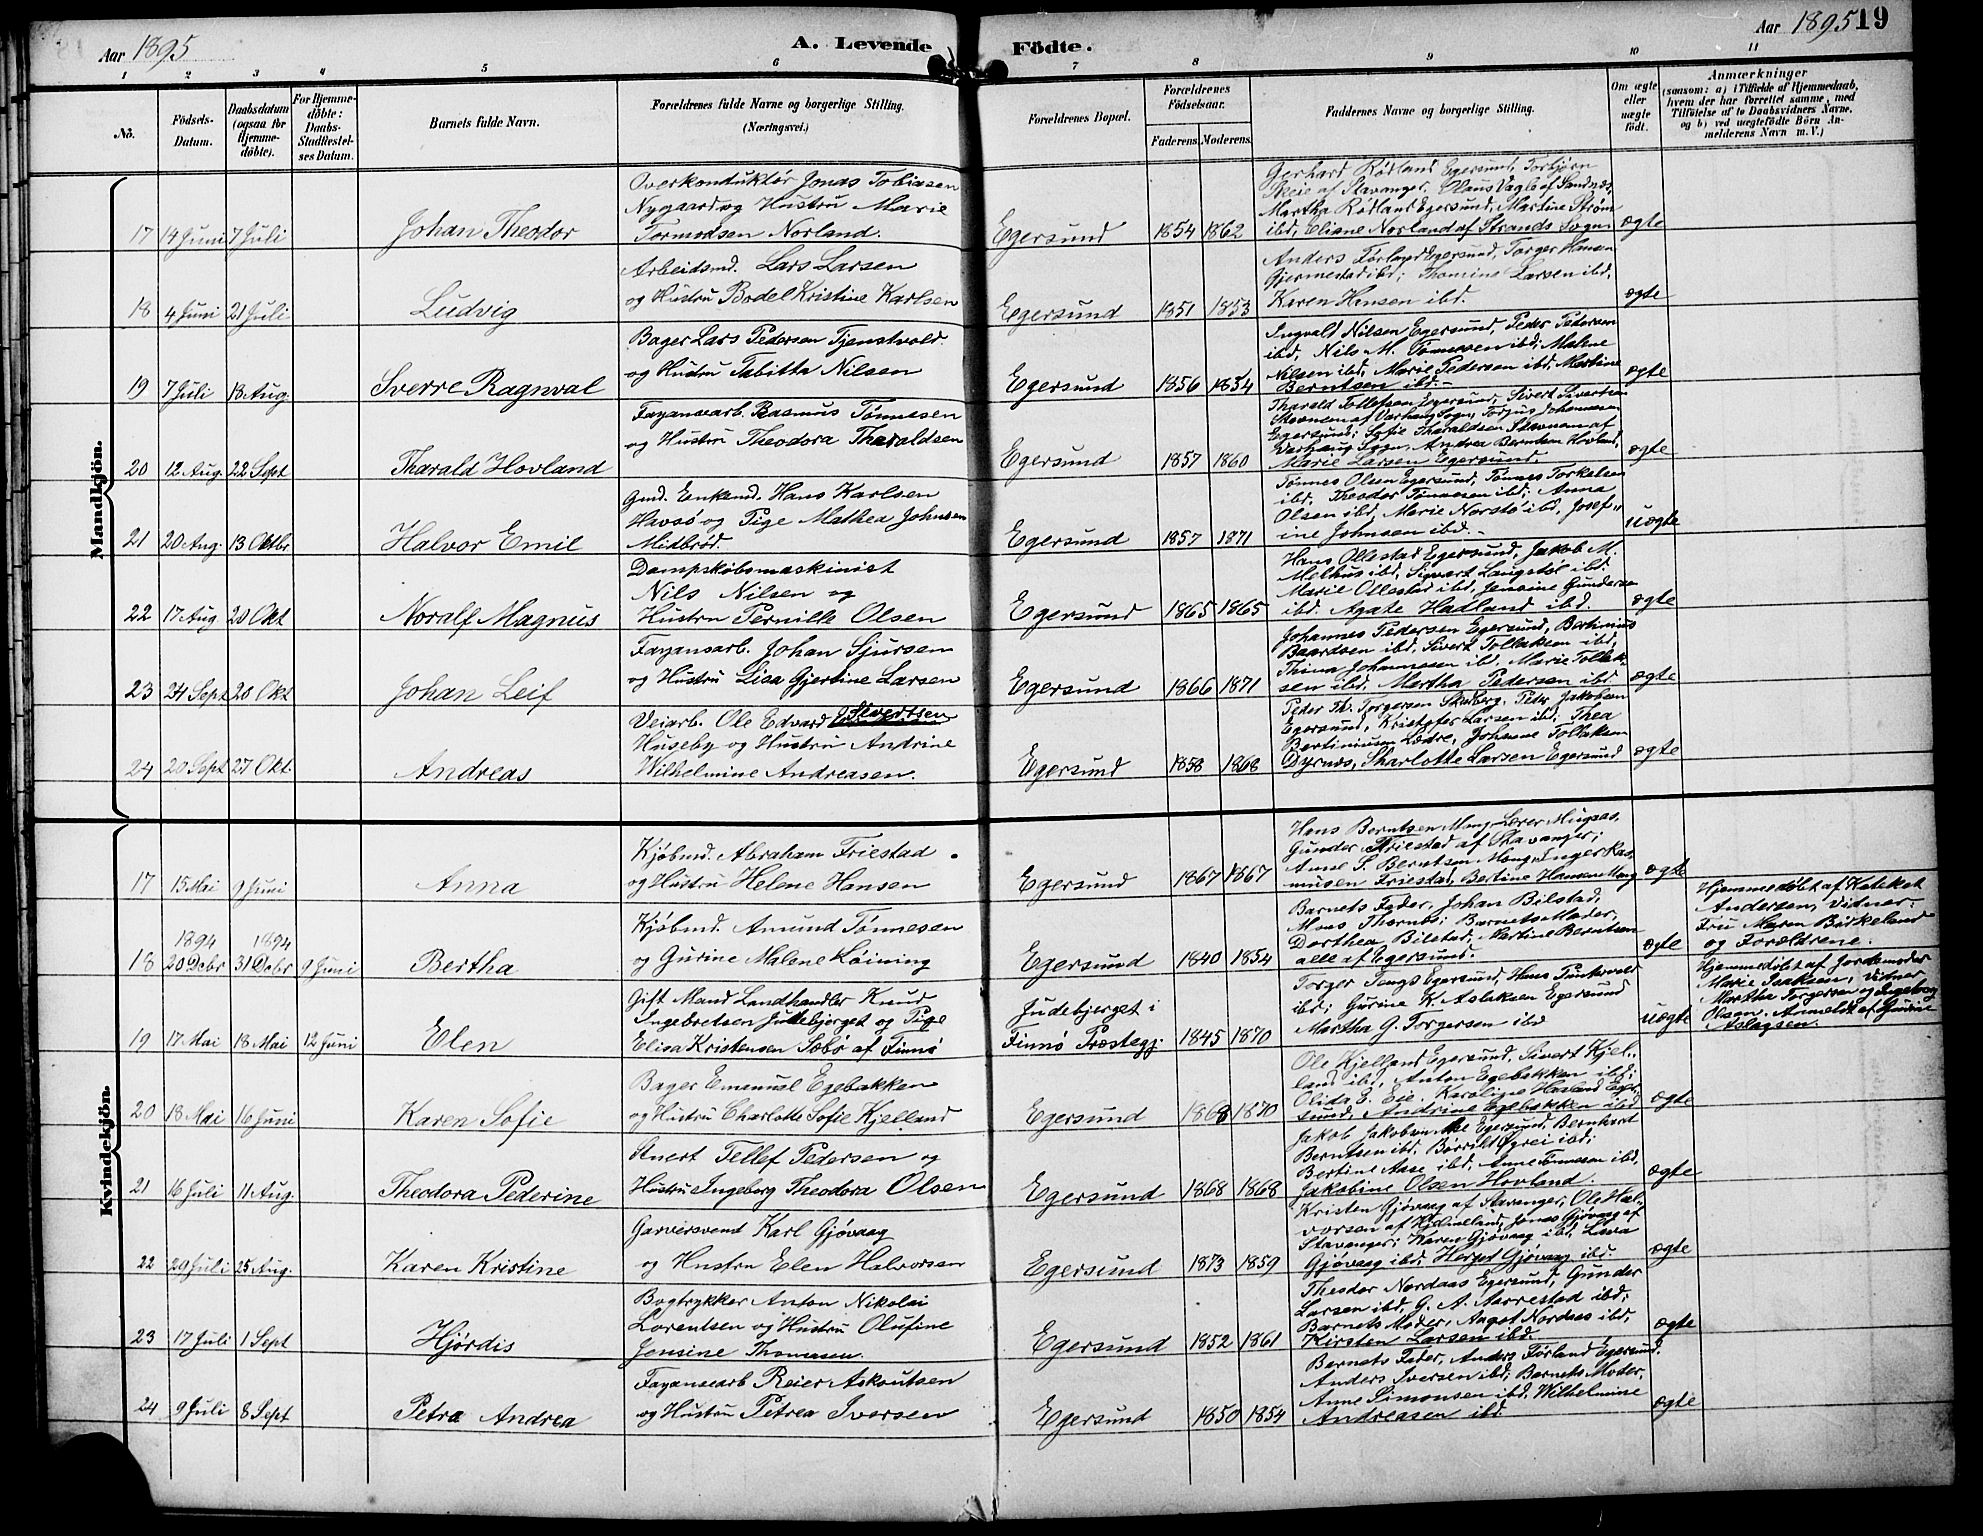 Aar 1895
A. Levende Födte.
Aar 1895 19
1 2 3 4 5 6 7 8 9 10 11
No.
Födsels-
Datum.
Daabsdatum
(ogsaa for
Hjemme-
döbte).
For Hjemme-
döbte:
Daabs-
Stadfæstel-
ses Datum.
Barnets fulde Navn.
Forældrenes fulde Navne og borgerlige Stilling.
(Næringsvei.)
Forældrenes Bopæl.
Forældrenes
Födselsaar.
Faderens. Moderens.
Faddernes Navne og borgerlige Stilling.
Om ægte
eller
uægte
födt.
Anmærkninger
(saasom: a) i Tilfælde af Hjemmedaab,
hvem der har forrettet samme, med
Tilföielse af to Daabsvidners Navne,
og b) ved uægtefödte Börn An-
melderens Navn m. V.)
Mandkjön.
17 14 Juni 7 Juli
Johan Theodor
Overkonduktør Jonas Tobiasen
Nygaard og Hustru Marie
Tormodsen Norland.
Egersund 1854 1862
Gerhard Rødland Egersund, Torbjørn
Skeie af Stavanger, Olaus Vagle af Sandnæs,
Martha Rødland Egersund, Martine Strøm
ibd, Eliane Norland af Strands Sogn.
ægte
18 4 Juni 21 Juli
Ludvig
Arbeidsmd. Lars Larsen
og Hustru Bodel Kristine Karlsen
Egersund 1851 1853
Anders Førland Egersund, Torger Hansen
Gjermestad ibd; Thomine Larsen ibd,
Karen Hansen ibd.
ægte
19 7 Juli 18 Aug.
Sverre Ragnval
Bager Lars Pedersen Tjenstvold
og Hustru Tabitta Nilsen
Egersund 1856 1854
Ingvald Nilsen Egersund, Peder Pedersen
ibd, Nils M. Tønnesen ibd; Malene
Nilsen ibd, Marie Pedersen ibd, Martine
Berntsen ibd.
ægte
20 12 Aug. 22 Sept
Tharald Hovland
Fayansearb. Rasmus Tønnesen
og Hustru Theodora Tharaldsen
Egersund 1857 1860
Tharald Tollefsen Egersund, Sivert Sivertsen
Stavnem af Varhaug Sogn, Torjus Johannesen
Egersund; Sofie Tharaldsen Stavnem af
Varhaug Sogn, Andrea Berntsen Hovland,
Marie Larsen Egersund.
ægte
21 20 Aug. 13 Oktbr
Halvor Emil
Gmd. Enkemd. Hans Karlsen
Havsø og Pige Mathea Johnsen
Midbrød.
Egersund 1857 1871
Tønnes Olsen Egersund, Tønnes Torkelsen
ibd, Theodor Tønnesen ibd; Anna
Olsen ibd, Marie Norstø ibd, Josef-
ine Johnsen ibd.
uægte
22 17 Aug 20 Okt
Noralf Magnus
Dampskibsmaskinist
Nils Nilsen og
Hustru Pernille Olsen
Egersund 1865 1865
Hans Ollestad Egersund, Jakob M.
Melhus ibd, Sigvart Langstøl ibd.
Marie Ollestad ibd, Jensine Gundersen
ibd. Agate Hadland ibd.
ægte
23 24 Sept 20 Okt
Johan Leif
Fayansarb. Johan Sjursen
og Hustru Lisa Gjertine Larsen
Egersund 1866 1871
Johannes Pedersen Egersund, Bertinius
Baardsen ibd, Sivert Tollaksen ibd,
Thina Johannesen ibd, Marie Tollak-
sen ibd. Martha Pedersen ibd.
ægte
24 20 Sept 27 Okt.
Andreas
Veiarb. Ole Edvard Sivertsen
Huseby og Hustru Andrine
Wilhelmine Andreasen.
Egersund 1858 1868
Peder Th. Torgersen Peder Jakobsen
Egersund, Kristofer Larsen ibd; Thea
Bertiniusen Lædre, Johanne Tollaksen
Dyrnæs, Sharlotte Larsen Egersund
ægte
Kvindekjön.
17 15 Mai 9 Juni
Anna
Kjøbmd. Abraham Friestad
og Hustru Helene Hansen
Egersund 1867 1867
Hans Berntsen Mong, Lærer
Gunder Friestad af Stavanger;
Anne S. Berntsen Mong, Inger Ras-
musen Friestad, Bertine Hansen Mong
ægte
18 1894 20 Debr 1894 31 Debr 9 Juni
Bertha
Kjøbmd. Amund Tønnesen
og Gurine Malene Løining
Egersund 1840 1854
Barnets Fader, Johan Bilstad,
Moas Thornbs; Barnets Moder,
Dorthea Bilstad, Martine Berntsen
alle af Egersund.
ægte
Hjemmedøbt af Kateket
Andersen, Vidner:
Fru Maren Birkeland
og Forældrene.
19 17 Mai 18 Mai 12 Juni
Elen
Gift Mand Landhandler Knud
Ingebretsen Judebjerget og Pige
Elisa Kristensen Sæbø af Finnø
Judebjerget i
Finnø Præstegj. 1845 1870
Torger Tengs Egersund, Hans Puntervold
ibd; Gurine K. Aslaksen Egersund
Martha G. Torgersen ibd
uægte
Hjemmedøbt af Jordemoder
Marie Isaksen, Vidner
Martha Torgersen og Ingeborg
Olsen. Anmeldt af Gurine
Aslagsen.
20 18 Mai 16 Juni
Karen Sofie
Bager Emanuel Egebakken
og Hustru Charlotte Sofie Kjelland
Egersund 1868 1870
Ole Kjelland Egersund, Sivert Kjel-
land ibd, Anton Egebakken ibd;
Olida E. Eie, Karoline Havland Eger-
sund, Andrine Egebakken ibd
ægte
21 16 Juli 11 Aug.
Theodora Pederine
Snert Tellef Pedersen og
Hustru Ingeborg Theodora Olsen
Egersund 1868 1868
Jakob Jakobsen Egersund, Bernhard
Berntsen ibd, Børrikt Øgrei ibd;
Bertine Aase ibd, Anne Tønnesen ibd,
Jakobine Olsen Hovland.
ægte
22 29 Juli 25 Aug.
Karen Kristine
Garversvend Karl Gjøvaag
og Hustru Elen Halvorsen
Egersund 1873 1859
Kristen Gjøvaag af Stavanger, Ole Hal-
vorsen af Jonas Gjøvaag af
Stavanger; Karen Gjøvaag ibd, Lava
Gjøvaag ibd, Herget Gjøvaag ibd.
ægte
23 17 Juli 1 Sept
Hjørdis
Bogtrykker Anton Nikolai
Lorentsen og Hustru Olufine
Jensine Thomasen.
Egersund 1852 1861
Theodor Nordaas Egersund, Gunder
Larsen ibd, G. A. Aarrestad ibd,
Barnets Moder, Angot Nordaas ibd,
Kirsten Larsen ibd.
ægte
24 9 Juli 8 Sept
Petra Andrea
Fayansearb Reier Askoutsen
og Hustru Petrea Iversen
Egersund 1850 1854
Barnets Fader, Anders Førland Egersund,
Anders Iversen ibd; Barnets Moder,
Anne Simonsen ibd, Wilhelmine
Andreasen ibd.
ægte